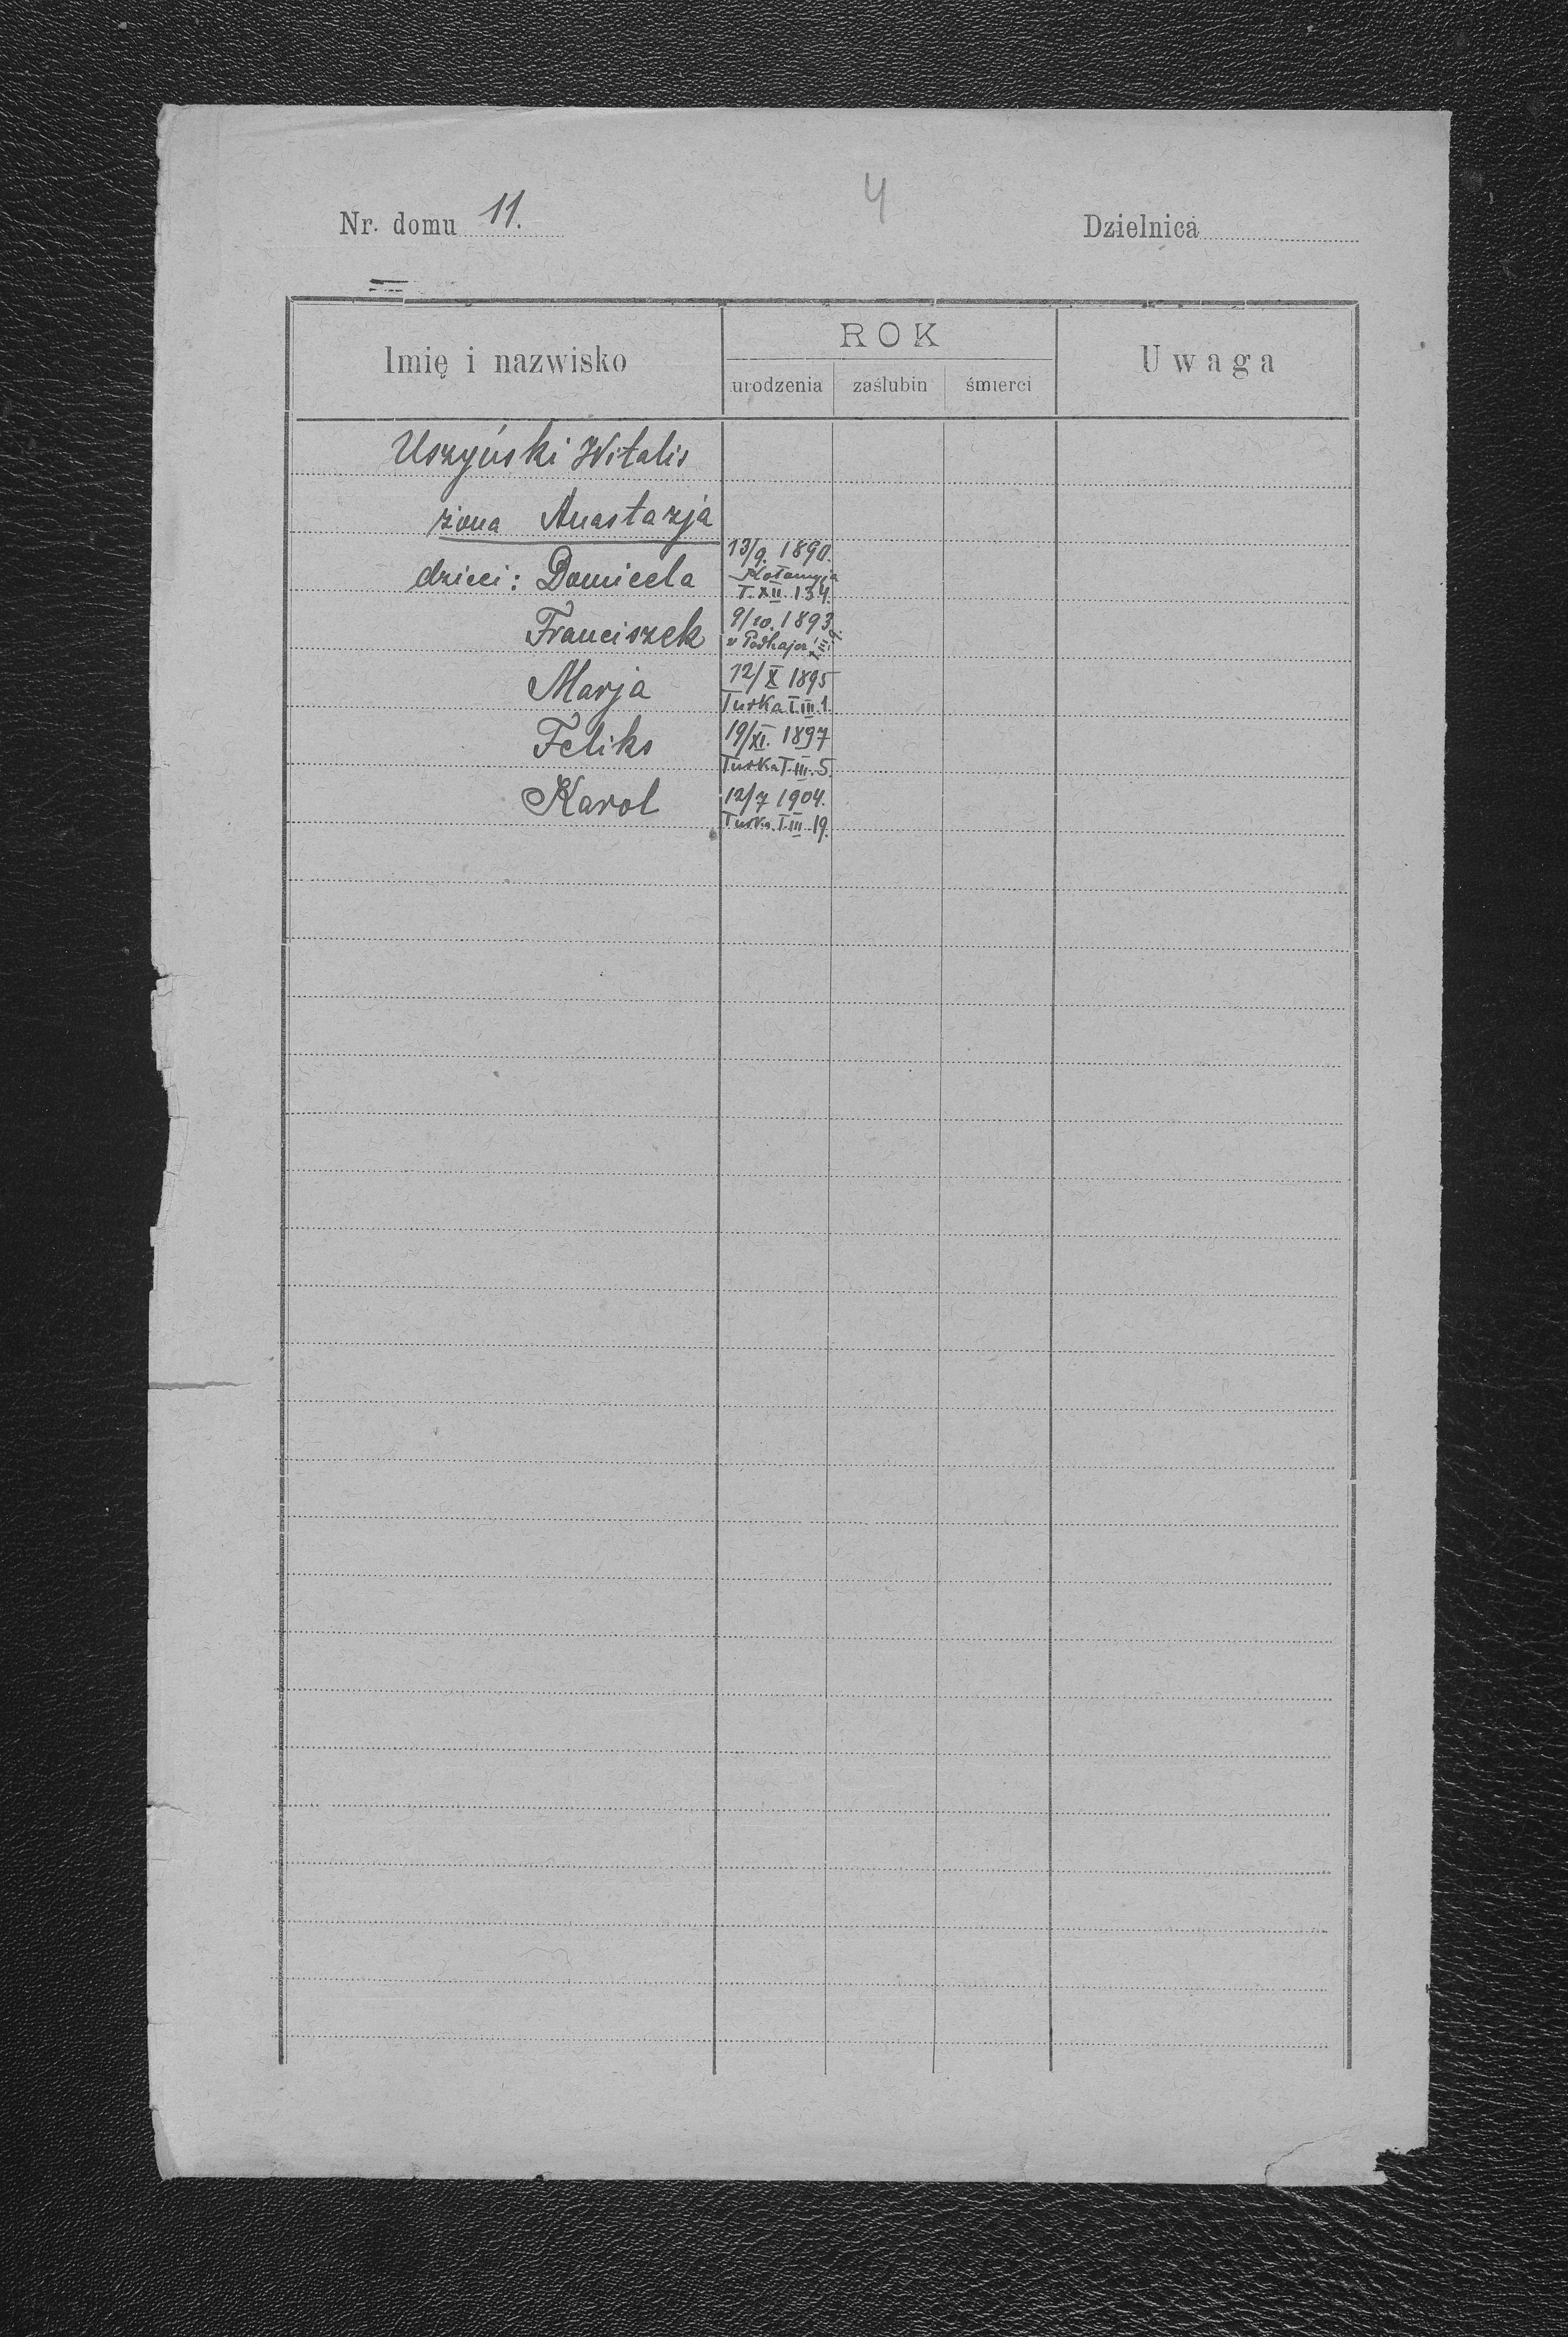 Nr. domu 11.
4
Dzielnica
Imię i nazwisko
ROK
urodzenia
zaślubin
śmierci
Uwaga
Uszyński Witalis
żona Anastazja
dzieci: Domicela
13/9. 1890.
Kołomyja
T. XII. 134.
Franciszek
9/10. 1893
w Podhajcz
Marja
12/X 1895
Turka T. III. 1.
Feliks
19/XI. 1897
Turka T. III. 5.
Karol
12/7 1904.
Turka. T. III. 19.